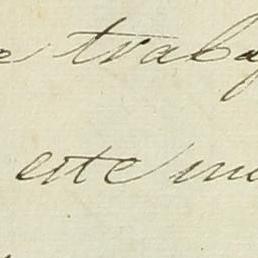 e traba
este mi